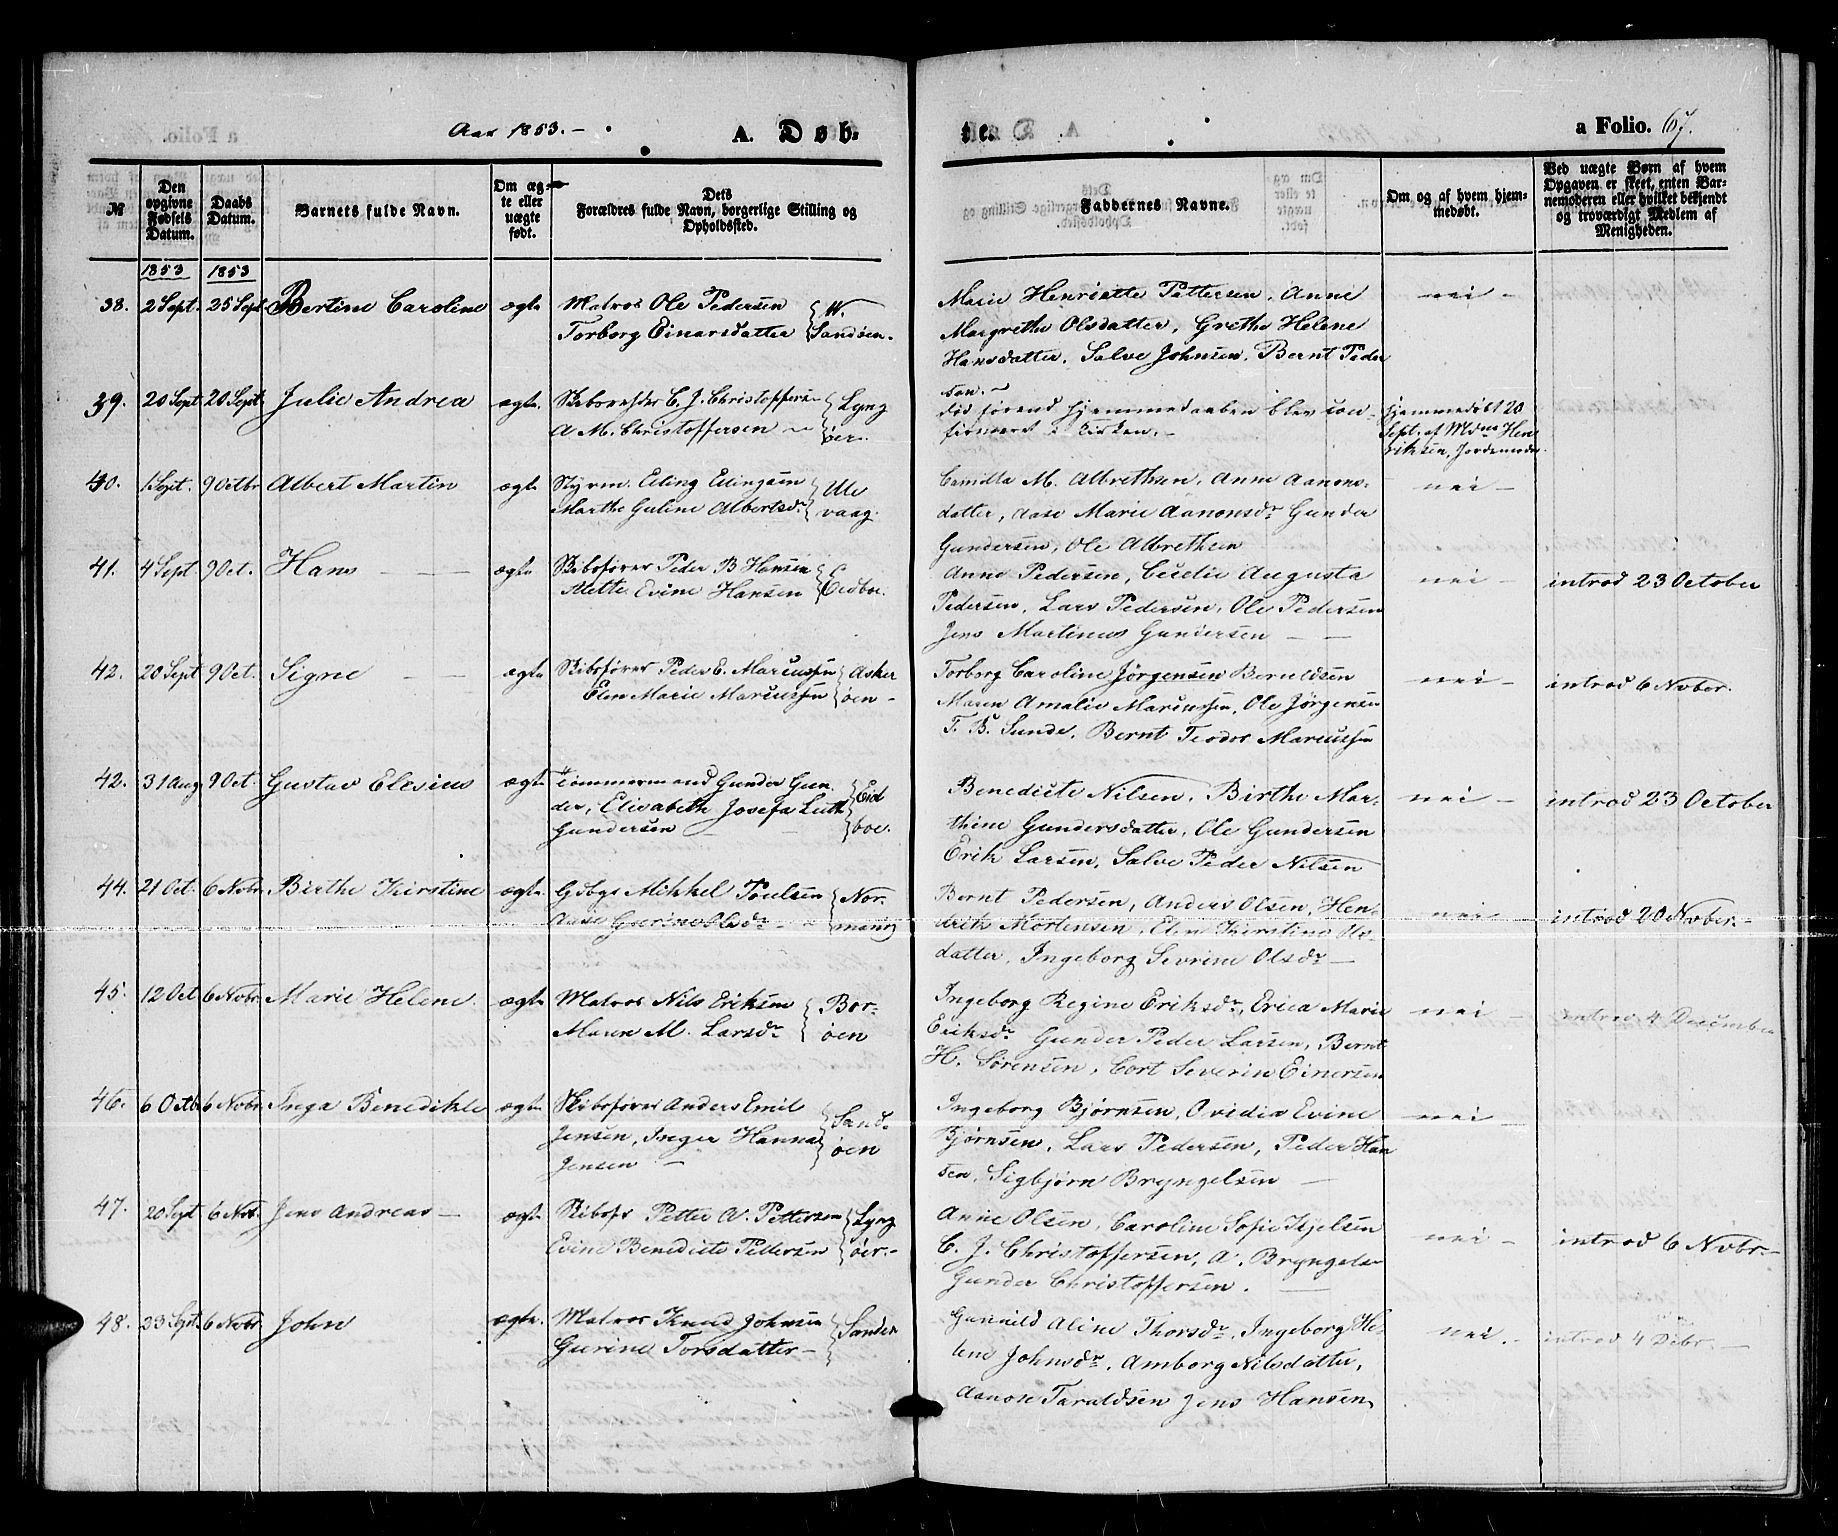 Aar 1853. –
A. Døb-
te.
a Folio. 67.
№
Den opgivne Fødsels Datum.
Daabs Datum.
Barnets fulde Navn.
Om ægte eller uægte født.
Dets Forældres fulde Navn, borgerlige Stilling og Opholdssted.
Faddernes Navne.
Om og af hvem hjemmedøbt.
Ved uægte Børn af hvem Opgaven er skeet, enten Barnemoderen eller hvilket bekjendt og troværdigt Medlem af Menigheden.
1853 1853
38. 2 Sept. 25 Sept. Bertine Caroline ægte Matros Ole Pedersen
Torborg Einarsdatter W. Sandøen.
Marie Henriette Pettersen, Anne
Margrethe Olsdatter, Grethe Helene
Hansdatter, Salve Johnsen, Bernt Peder
sen. –
nei –
39. 20 Sept 20 Sept. Julie Andrea ægte. C. J. Christoffersen
A M. Christoffersen – Lyngøer.
blev con-
firmeret i Kirken. –
hjemmedøbt 20
Sept. af Hen
riksen, Jordemoder.
40. 1 Sept. 9 Octbr Albert Martin ægte Styrm. Eiling Eilingsen
Marthe Guline Albertsdr Ulevaag.
Camilla M. Albrethsen, Anne Aanons-
datter, Aase Marie Aanonsdr Gunder
Gundersen, Ole Albrethsen
nei –
41. 4 Sept 9 Oct. Hans – ægte Skibsfører Peder B Hansen
Mette Evine Hansen Eidboe.
Anne Pedersen, Cecelie Augusta
Pedersen, Lars Pedersen, Ole Pedersen
Jens Martinus Gundersen – –
nei – introd 23 October
42. 20 Sept 9 Oct. Signe – ægte Skibsfører Peder E. Marcussen
Elen Marie Marcussen Askerøen –
Torborg Caroline Jörgensen Berneldsen
Maren Amalie Marcussen, Ole Jörgensen
T. B. Sunde, Bernt Teodor Marcussen
nei – introd 6 Nvber.
42. 31 Aug 9 Oct. Gustav Elesius ægte Tömmermand Gunder Gun
der, Elisabeth Josefa
Gundersen Eidboe.
Benedicte Nilsen, Birthe Mar-
thine Gundersdatter, Ole Gundersen
Erik Larsen, Salve Peder Nilsen
nei – introd 23 October
44. 21 Oct. 6 Nvbr. Birthe Kirstine ægte Gdbgr Mikkel Poulsen
Aase Gurine Olsdr – Normanvig
Bernt Pedersen, Anders Olsen, Hen-
drik Mortensen, Elen Kierstine Ols-
datter, Ingeborg Sevrine Olsdr –
nei – introd 20 Nvber. –
45. 12 Oct 6 Nvbr. Marie Helene. ægte Matros Nils Eriksen
Maren M. Larsdr Borøen
Ingeborg Regine Eriksdr, Erica Marie
Eriksdr Gunder Peder Larsen, Bernt
H. Sörensen, Cort Severin Einersen
nei – introd 4 December
46. 6 Octbr 6 Nvbr. Inga Benedikte ægte Skibsfører Anders Emil
Jensen, Inger Hanna
Jensen – Sandøen
Ingeborg Bjørnsen, Ovidia Evine
Bjørnsen, Lars Pedersen, Peder Han
sen, Sigbjørn Bryngelsen –
nei –
47. 20 Sept 6 Nvbr. Jens Andreas – ægte Skibsf. Petter A. Pettersen
Evine Benedicte Pettersen Lyngøer. –
Anne Olsen, Caroline Sofie Kjelsen
C. J. Christoffersen, A. Bryngels
Gunder Christoffersen. –
nei – introd 6 Nvbr –
48. 23 Sept. 6 Nvbr. John ægte. Matros Knud Johnsen
Gurine Torsdatter – Sandøen
Gunnild Aline Thorsdr, Ingeborg He-
lene Johnsdr, Amborg Nilsdatter,
Aanon Taraldsen Jens Hansen,
nei. – introd 4 Debr. –